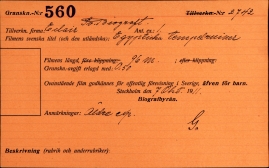 Granskn.-Nr 560 Tillverkn.-Nr 2742
Fotograf
Tillverkn. firma: Eclair Ant. ex:
Filmens svenska titel (och den utländska): Egyptiska tempelruiner
Filmens längd, före klippning: 96 m. ; efter klippning:
Gransknings-avgift erlagd med:
Ovanstående film godkännes för offentlig förevisning i Sverige, även för barn.
Stockholm den Okt. 191
Biografbyrån.
Anmärkningar: Äldre ex.
G.
Beskrivning (rubrik och underrubriker):